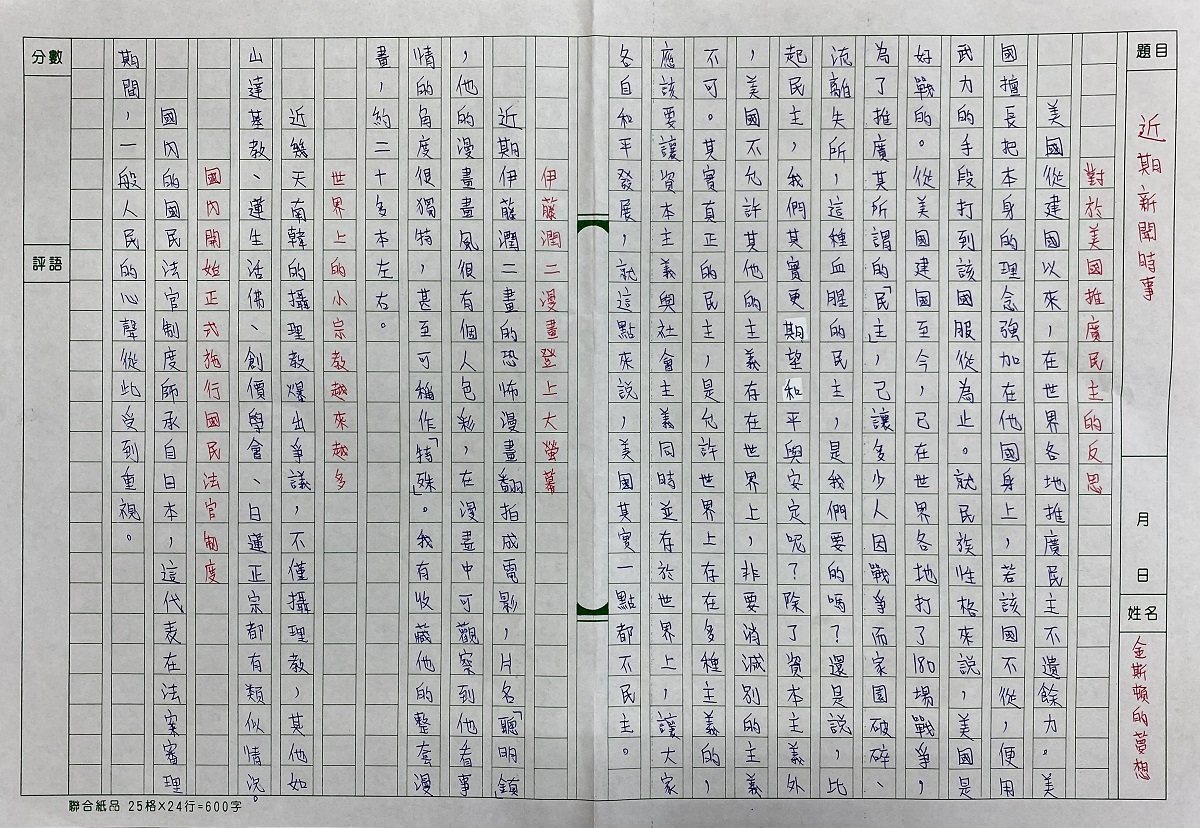 題目
近期新聞時事
月
日
姓名
金斯頓的夢想
對於美國推廣民主的反思
美國從建國以來，在世界各地推廣民主不遺餘力。美
國擅長把本身的理念強加在他國身上，若該國不從，便用
武力的手段打到該國服從為止。就民族性格來說，美國是
好戰的。從美國建國至今，已在世界各地打了180場戰爭，
為了推廣其所謂的「民主」，已讓多少人因戰爭而家國破碎、
流離失所，這種血腥的民主，是我們要的嗎？還是說，比
起民主，我們其實更期望和平與安定呢？除了資本主義外
，美國不允許其他的主義存在世界上，非要消滅別的主義
不可。其實真正的民主，是允許世界上存在多種主義的，
應該要讓資本主義與社會主義同時並存於世界上，讓大家
各自和平發展，就這點來說，美國其實一點都不民主。
伊藤潤二漫畫登上大螢幕
近期伊藤潤二畫的恐怖漫畫翻拍成電影，片名「聰明鎮
，他的漫畫畫風很有個人色彩，在漫畫中可觀察到他看事
情的角度很獨特，甚至可稱作「特殊」。我有收藏他的整套漫
畫，約二十多本左右。
世界上的小宗教越來越多
近幾天南韓的攝理教爆出爭議，不僅攝理教，其他如
山達基教、蓮生活佛、創價學會、日蓮正宗都有類似情況。
國內開始正式施行國民法官制度
國內的國民法官制度師承自日本，這代表在法案審理
期間，一般人民的心聲從此受到重視。
分數
評語
聯合紙品 25格×24行=600字